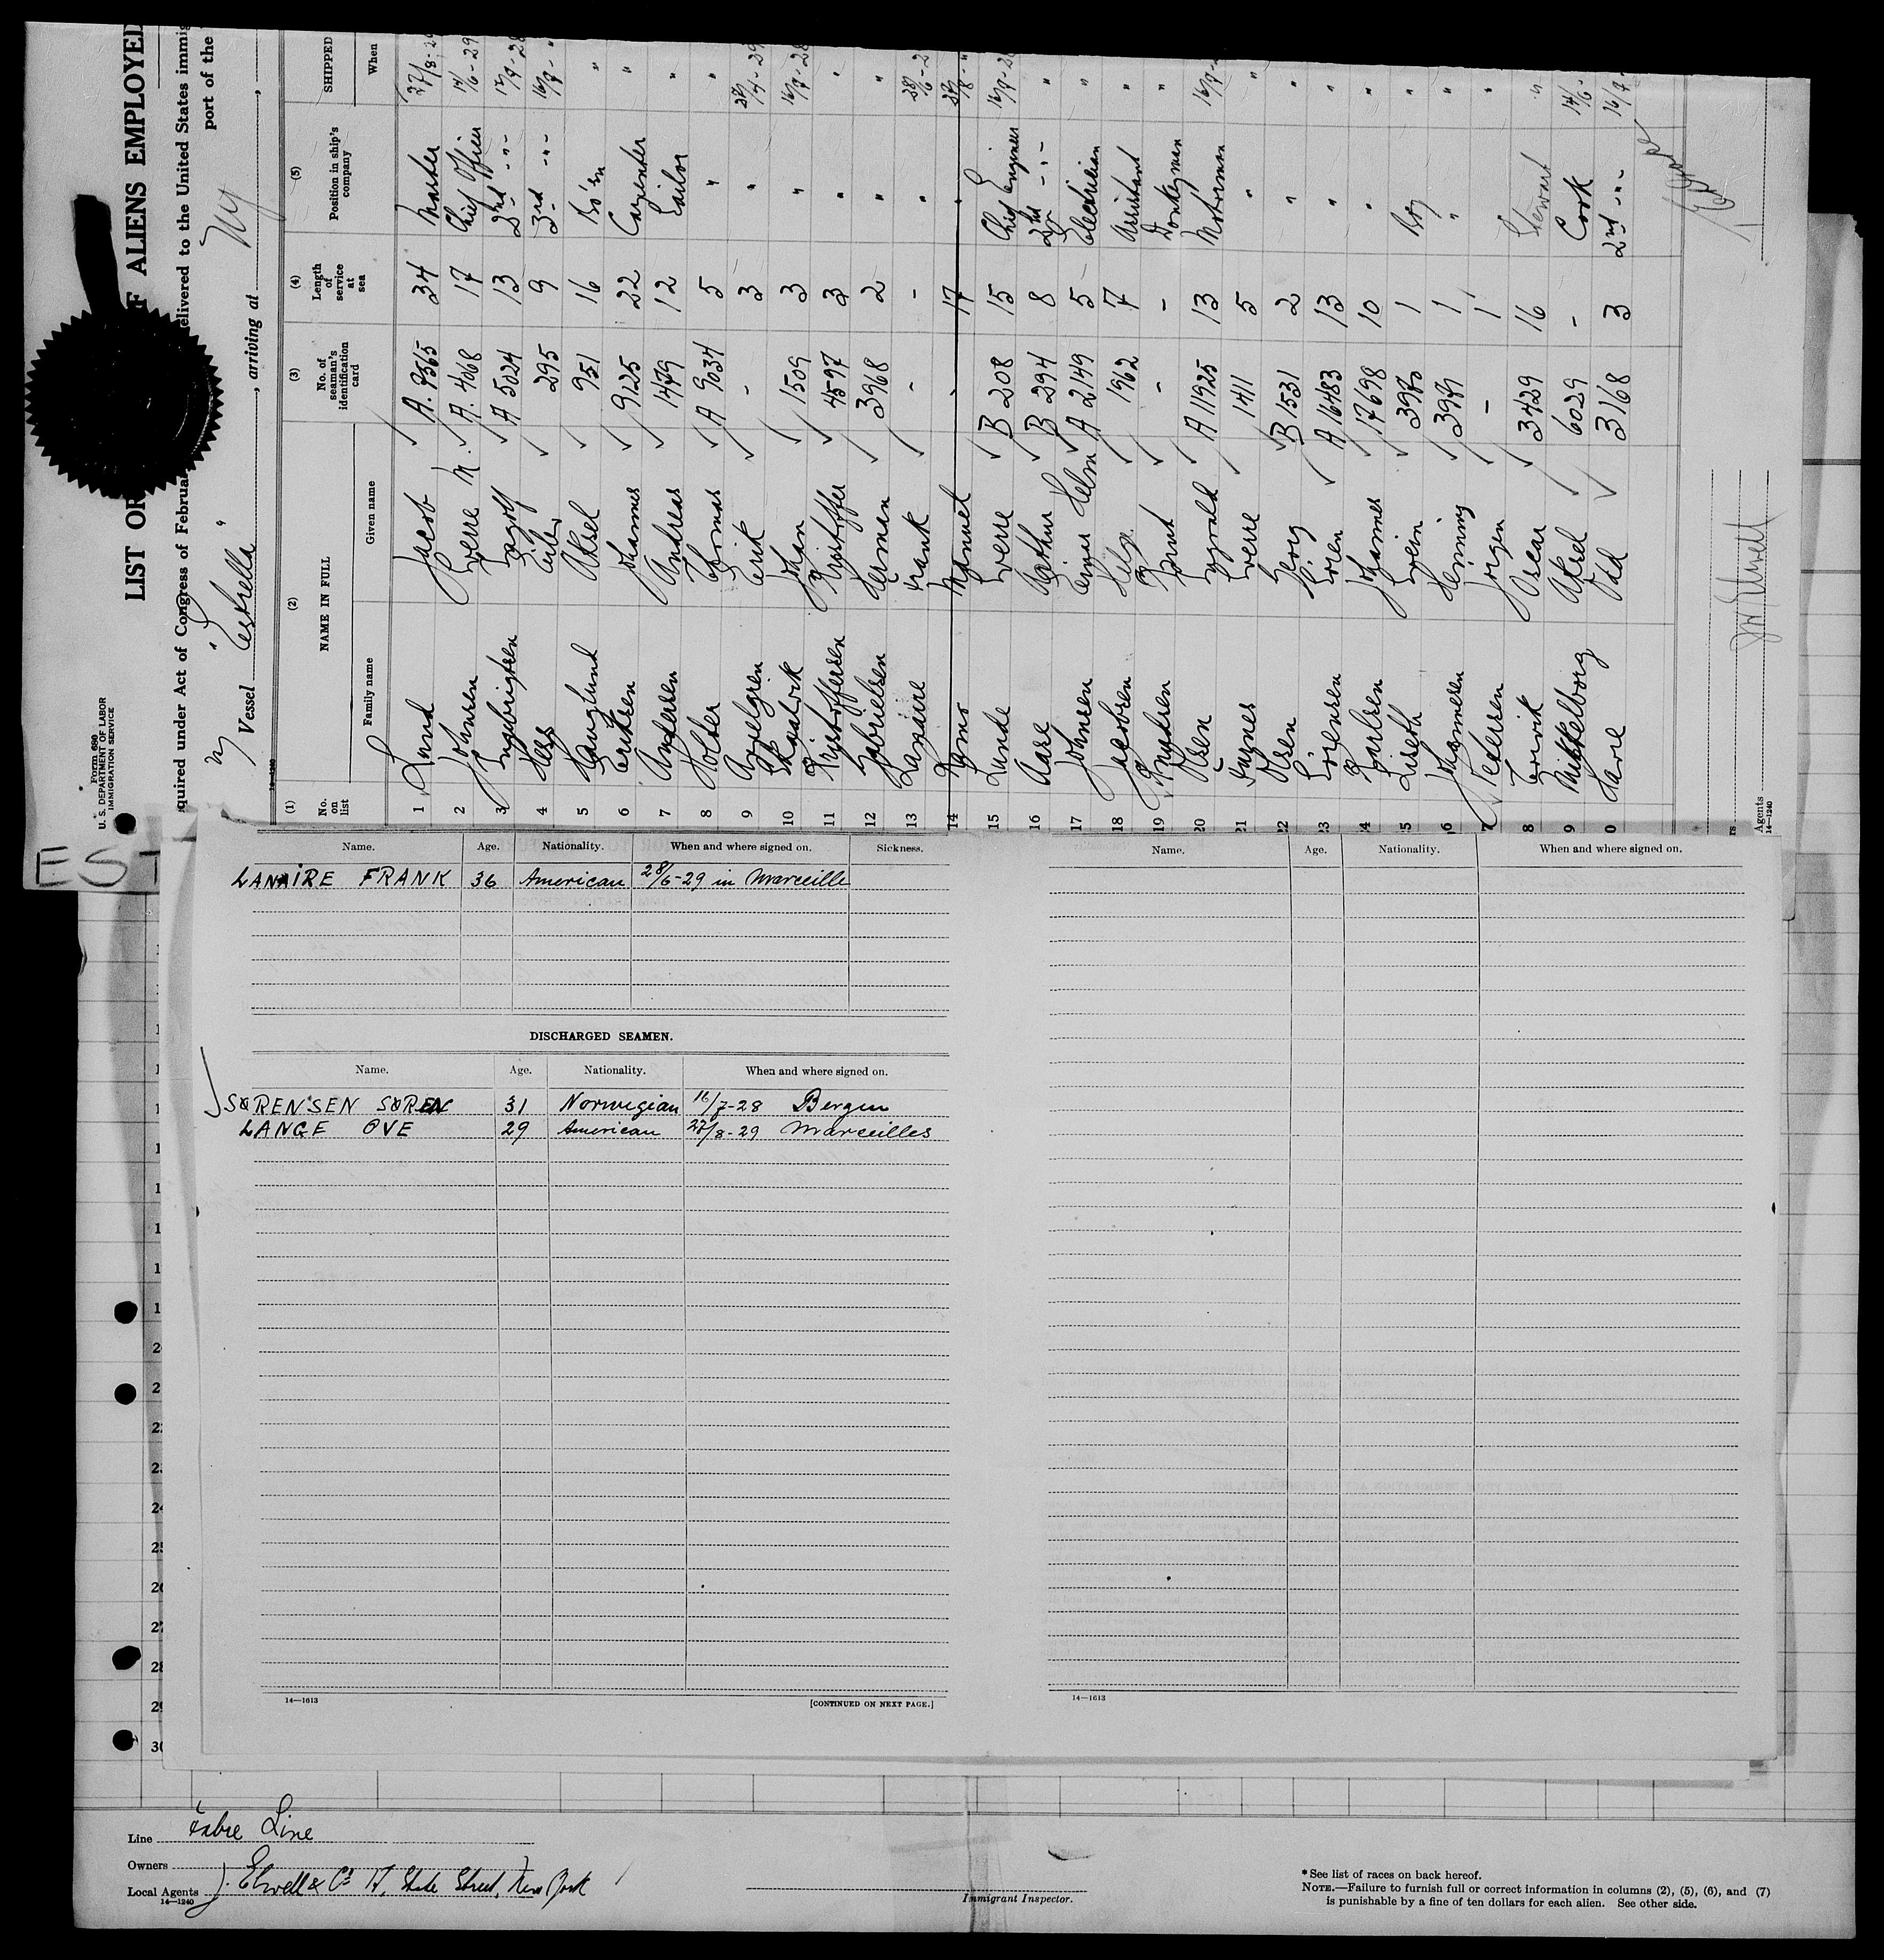 Form 680
U. S. DEPARTMENT OF LABOR
IMMIGRATION SERVICE
LIST OR F ALIENS EMPLOYED
quired under Act of Congress of Februa elivered to the United States immig
port of the
Vessel " Estrella " , arriving at NY ,
14—1240
(1) (2) (3) (4) (5)
No. on list NAME IN FULL No. of seaman's identification card Length of service at sea Position in ship's company SHIPPED
Family name Given name When
1 Lund Jacob A. 9565 34 Master 27/8-29
2 Johnsen Sverre M. A. 4068 17 Chief Officer 14/6-29
3 Ingebrigtsen A 5024 13 2nd -"-
4 Hess 295 9 3rd -"- 16/7- "
5 Hauglund Aksel 951 16 Bo'sn "
6 Eriksen Johannes 9125 22 Carpenter "
7 Andersen Andreas 1479 12 Sailor "
8 Holter Thomas A 9034 5 " "
9 Appelgren Erik - 3 "
10 Skaalvik Johan 1509 3 " 16/7-28
11 Kristoffersen Kristoffer 4597 3 " "
12 Gabrielsen Herman 3968 2 " "
13 Lanaire Frank - - " 28/6-2
14 Ramo Manuel - 17 " 27/8- "
15 Lunde Sverre B 208 15 Chief Engineer 16/7-28
16 Aase Arthur B 294 8 2nd -"- "
17 Johnsen Einar Helm A 2149 5 Electrician "
18 Jacobsen Helg. 1962 7 Assistant "
19 Knudsen Knut - - Donkeyman "
20 Olsen A 11925 13 Motorman 16/7-
21 Sverre 1411 5 " "
22 Olsen Georg B 1531 2 " "
23 Sörensen Sören A 16483 13 " "
24 Karlsen Johannes 17698 10 " "
5 Liseth Svein 3980 1 Boy "
6 Johannesen Henning 1 " "
7 Pedersen Jörgen - 1 "
8 Oscar 3429 16 Stewart "
9 Mikkelborg Aksel 6029 - Cook 14/6-
0 Odd 3168 3 2nd -"- 16/7-
JW Elwell
Agents
14—1240
EST
Name. Age. Nationality. When and where signed on. Sickness.
LANAIRE FRANK 36 American 28/6-29 in Marceille
DISCHARGED SEAMEN.
Name. Age. Nationality. When and where signed on.
SØRENSEN SØREN 31 Norwegian 16/7-28 Bergen
LANGE OVE 29 American 27/8-29 Marceilles
14—1613 [CONTINUED ON NEXT PAGE.]
Name. Age. Nationality. When and where signed on.
14—1613
1
1
1
1
1
1
1
1
1
1
2
2
22
2
24
25
26
27
28
29
30
Line Fabre Line
Owners
Local Agents J. Elwell & Co 17, State Street, New York
14—1240
Immigrant Inspector.
* See list of races on back hereof.
NOTE.—Failure to furnish full or correct information in columns (2), (5), (6), and (7)
is punishable by a fine of ten dollars for each alien. See other side.